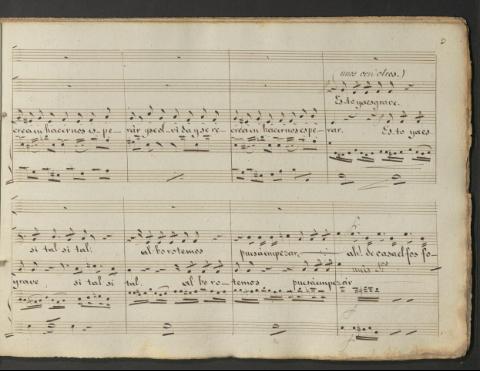 unos con otros.)
Esto yaes grave.
crean hacernos espe- rar, y se olvidan y se re- crean hacernos espe- rar. Esto yaes
si tal si tal. alborotemos pues a empezar, ah! de casa el fos fo-
unis
grave, si tal si tal. alboro- temos pues a empezar